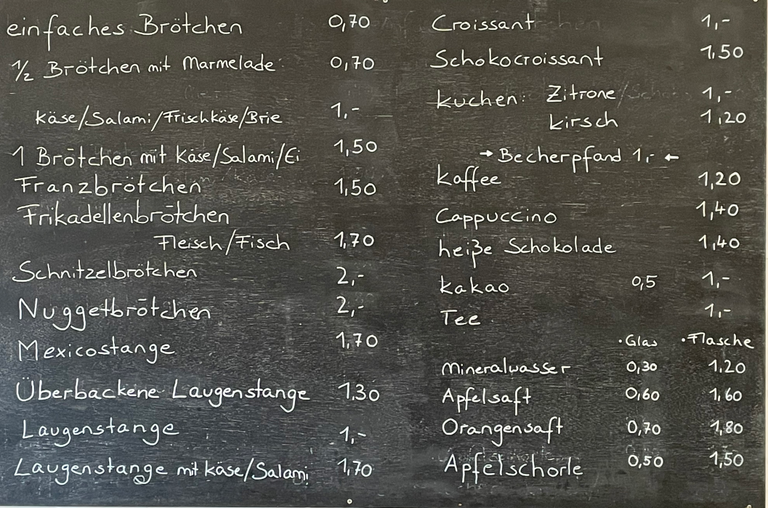 einfaches Brötchen 0,70
1/2 Brötchen mit Marmelade 0,70
Käse/Salami/Frischkäse/Brie 1,-
1 Brötchen mit Käse/Salami/Ei 1,50
Franzbrötchen 1,50
Frikadellenbrötchen
Fleisch/Fisch 1,70
Schnitzelbrötchen 2,-
Nuggetbrötchen 2,-
Mexicostange 1,70
Überbackene Laugenstange 1.30
Laugenstange 1,-
Laugenstange mit Käse/Salami 1,70
Croissant 1,-
Schokocroissant 1,50
Kuchen: Zitrone 1,-
Kirsch 1,20
→ Becherpfand 1,- ←
Kaffee 1,20
Cappuccino 1,40
heiße Schokolade 1,40
Kakao 0,5 1,-
Tee 1,-
·Glas ·Flasche
Mineralwasser 0,30 1.20
Apfelsaft 0,60 1,60
Orangensaft 0,70 1,80
Apfelschorle 0,50 1,50